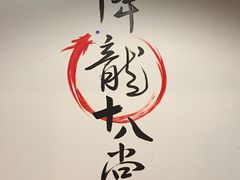 降龍十八尚